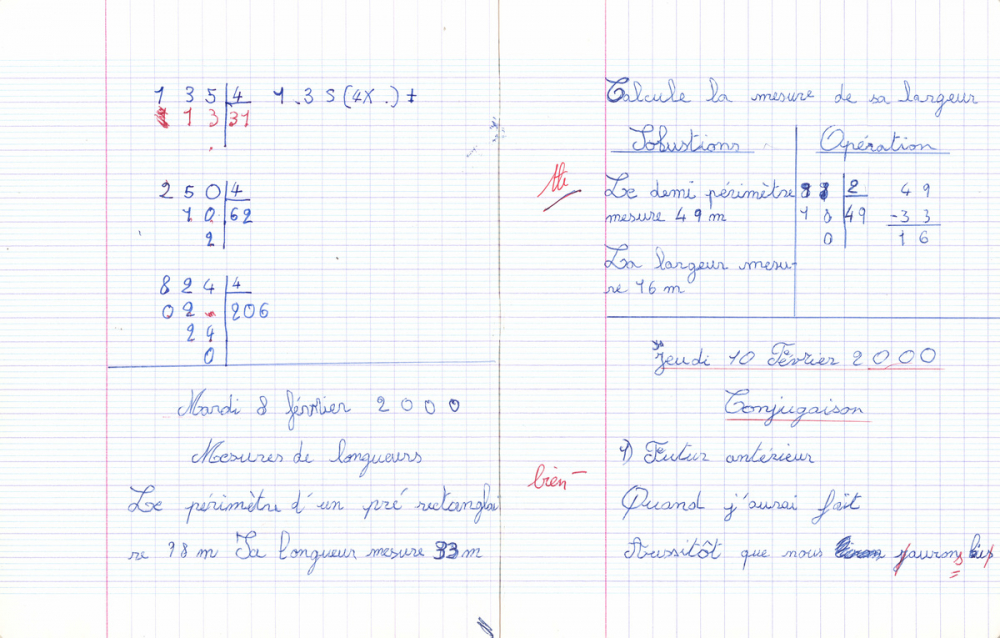 1 3 5 4 1.35(4X.)+
1 3 31
2 5 0 4
1 0 62
2
8 2 4 4
0 2 . 206
2 4
0
Mardi 8 février 2000
Mesures de longueurs
Le périmètre d'un pré rectanglai
re 98 m Sa longueur mesure 33 m
Calcule la mesure de sa largeur
Solustions Opération
tb
Le demi périmètre 9 8 2 4 9
mesure 49 m 1 8 49 -3 3
0 1 6
La largeur mesu-
re 16 m
Jeudi 10 Février 2000
Conjugaison
1) Futur antérieur
bien -
Quand j'aurai fait
Aussitôt que nous aurons